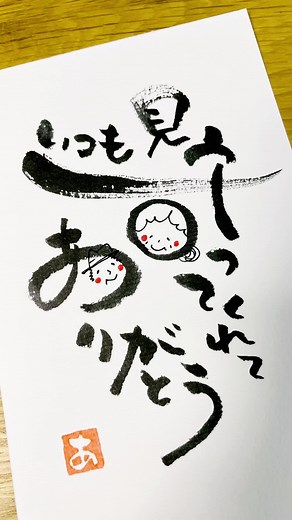 いつも見守ってくれて
ありがとう
あ